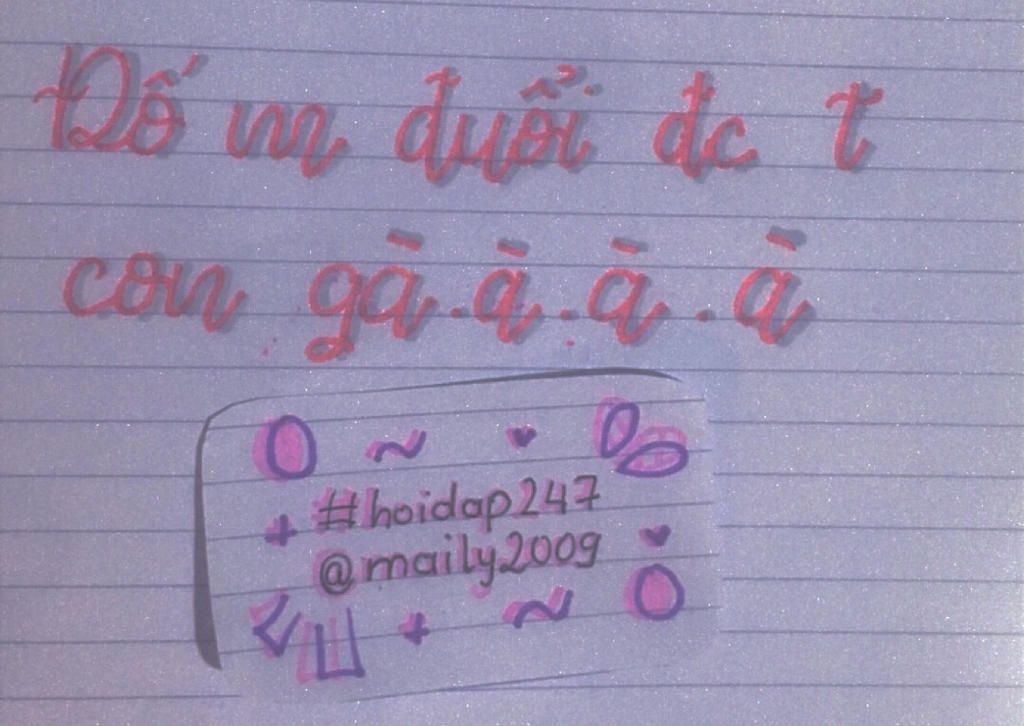 Đố m đuổi đc t
con gà.à.à.à
#hoidap247
@maily2009